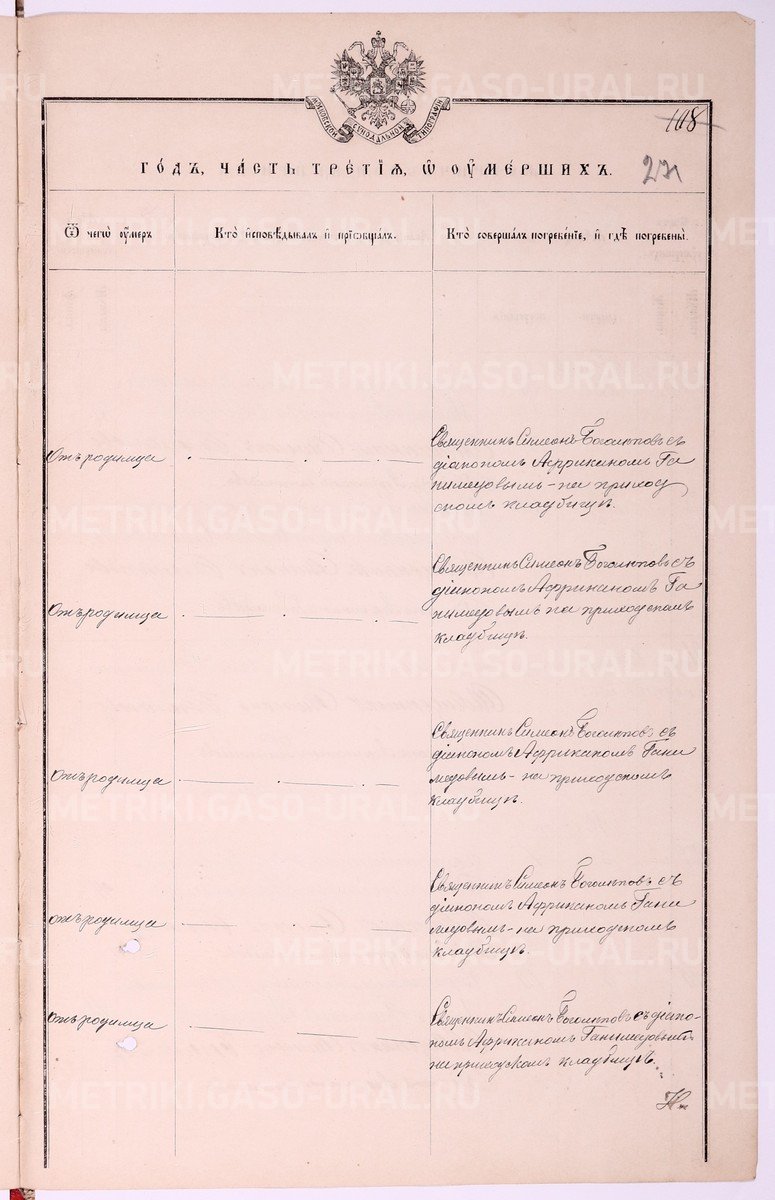 МОСКОВСКОЙ СѴНОДАЛЬНОЙ ТИПОГРАФІИ
108
ГО́ДЪ, ЧА́СТЬ ТРЕ́ТІѦ, Ѡ ОУ҆МЕ́РШИХЪ.
Ѿ чегѡ̀ оу҆́меръ
Кто̀ и҆сповѣ́дывалъ и҆ прїѡбща́лъ.
Кто̀ соверша́лъ погребе́нїе, и҆ гдѣ̀ погребены̀.
Отъ родимца
Священникъ Симеонъ Боголюповъ съ
діакономъ Африканомъ Га
нимедовымъ - на приход
скомъ кладбищѣ.
Отъ родимца
Священникъ Симеонъ Боголюповъ съ
діакономъ Африканомъ Га
нимедовымъ на приходскомъ
кладбищѣ.
Отъ родимца
Священникъ Симеонъ Боголюповъ съ
діакономъ Африканомъ Гани
медовымъ - на приходскомъ
кладбищѣ.
отъ родимца
Священникъ Симеонъ Боголюповъ съ
діакономъ Африканомъ Гани
медовымъ - на приходскомъ
кладбищѣ.
отъ родимца
Священникъ Симеонъ Боголюповъ съ діако-
номъ Африканомъ Ганимедовымъ
на приходскомъ кладбищѣ.
METRIKI.GASO-URAL.RU